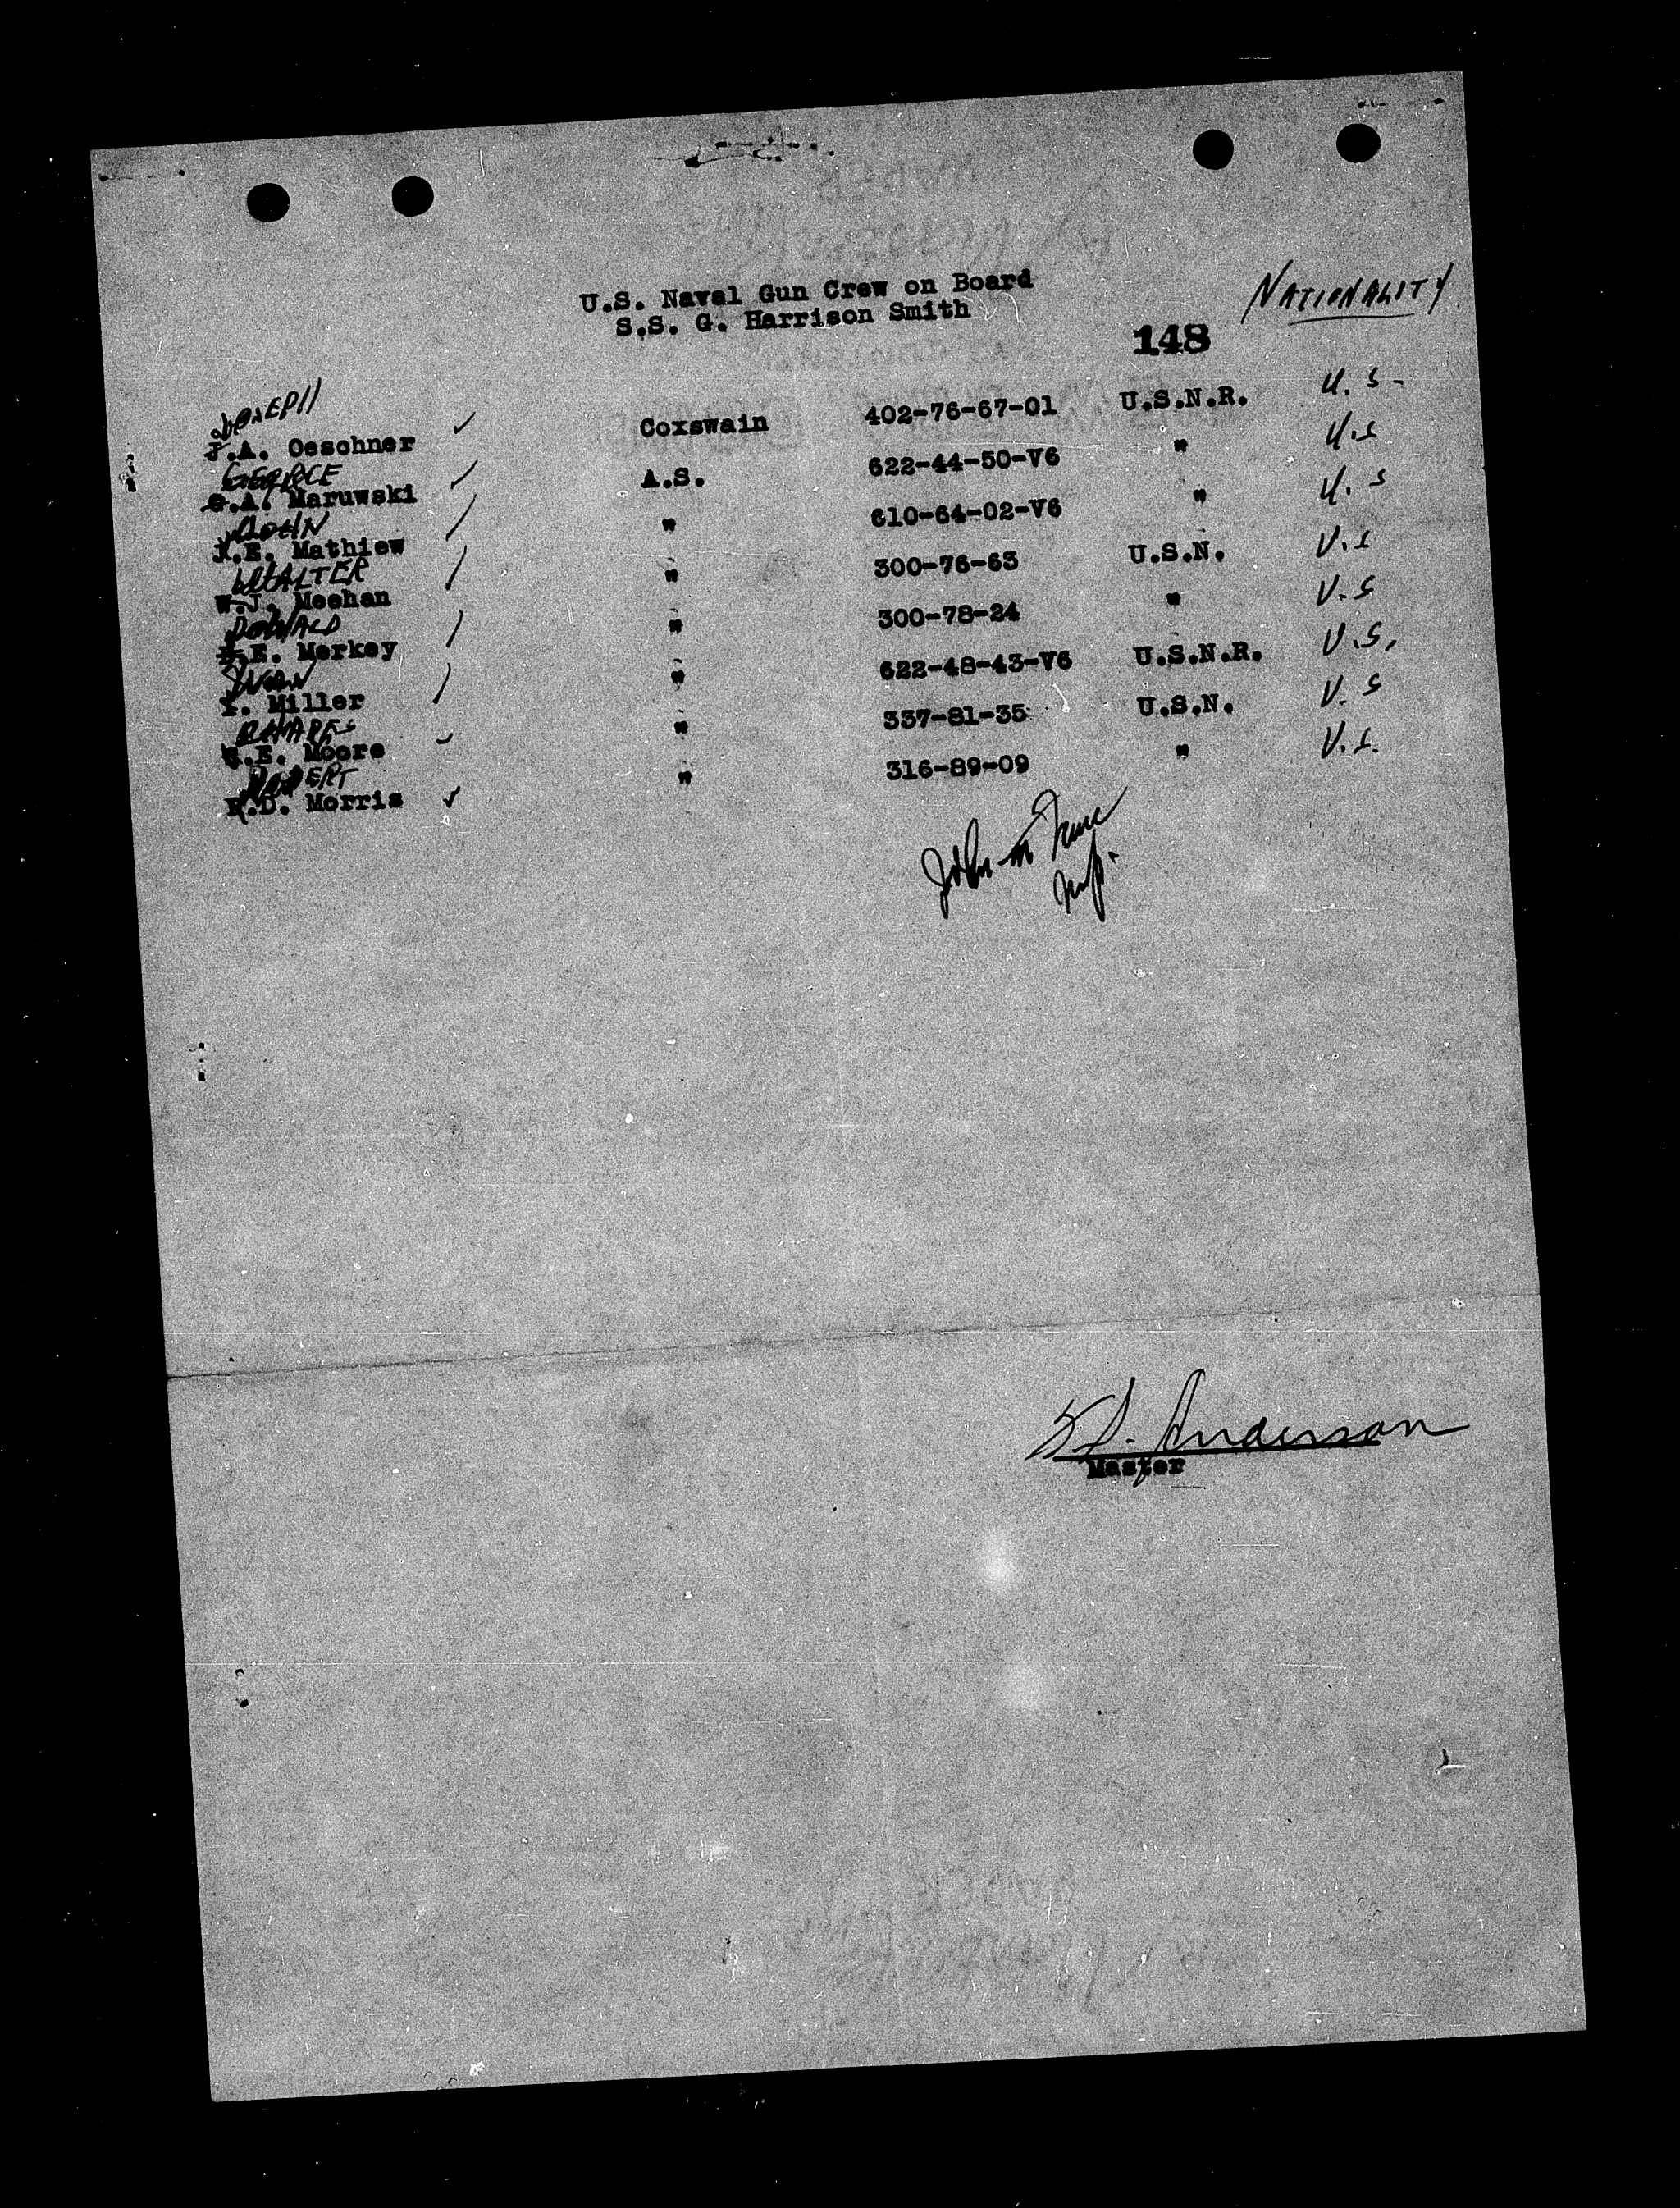 U.S. Naval Gun Crew on Board
S.S. G. Harrison Smith
NATIONALITY
148
JOSEPH
J.A. Oeschner ✓ Coxswain 402-76-67-01 U.S.N.R. U.S.
GEORGE
G.A. Maruwski ✓ A.S. 622-44-50-V6 " U.S
JOHN
J.E. Mathiew / " 610-64-02-V6 " U.S
WALTER
W.J. Meehan / " 300-76-63 U.S.N. U.S
DONALD
D.E. Merkey / " 300-78-24 " U.S
IVAN
I. Miller / " 622-48-43-V6 U.S.N.R. U.S.
CHARLES
C.E. Moore ✓ " 337-81-35 U.S.N. U.S
ROBERT
R.D. Morris ✓ " 316-89-09 " U.S.
John
Anderson
Master